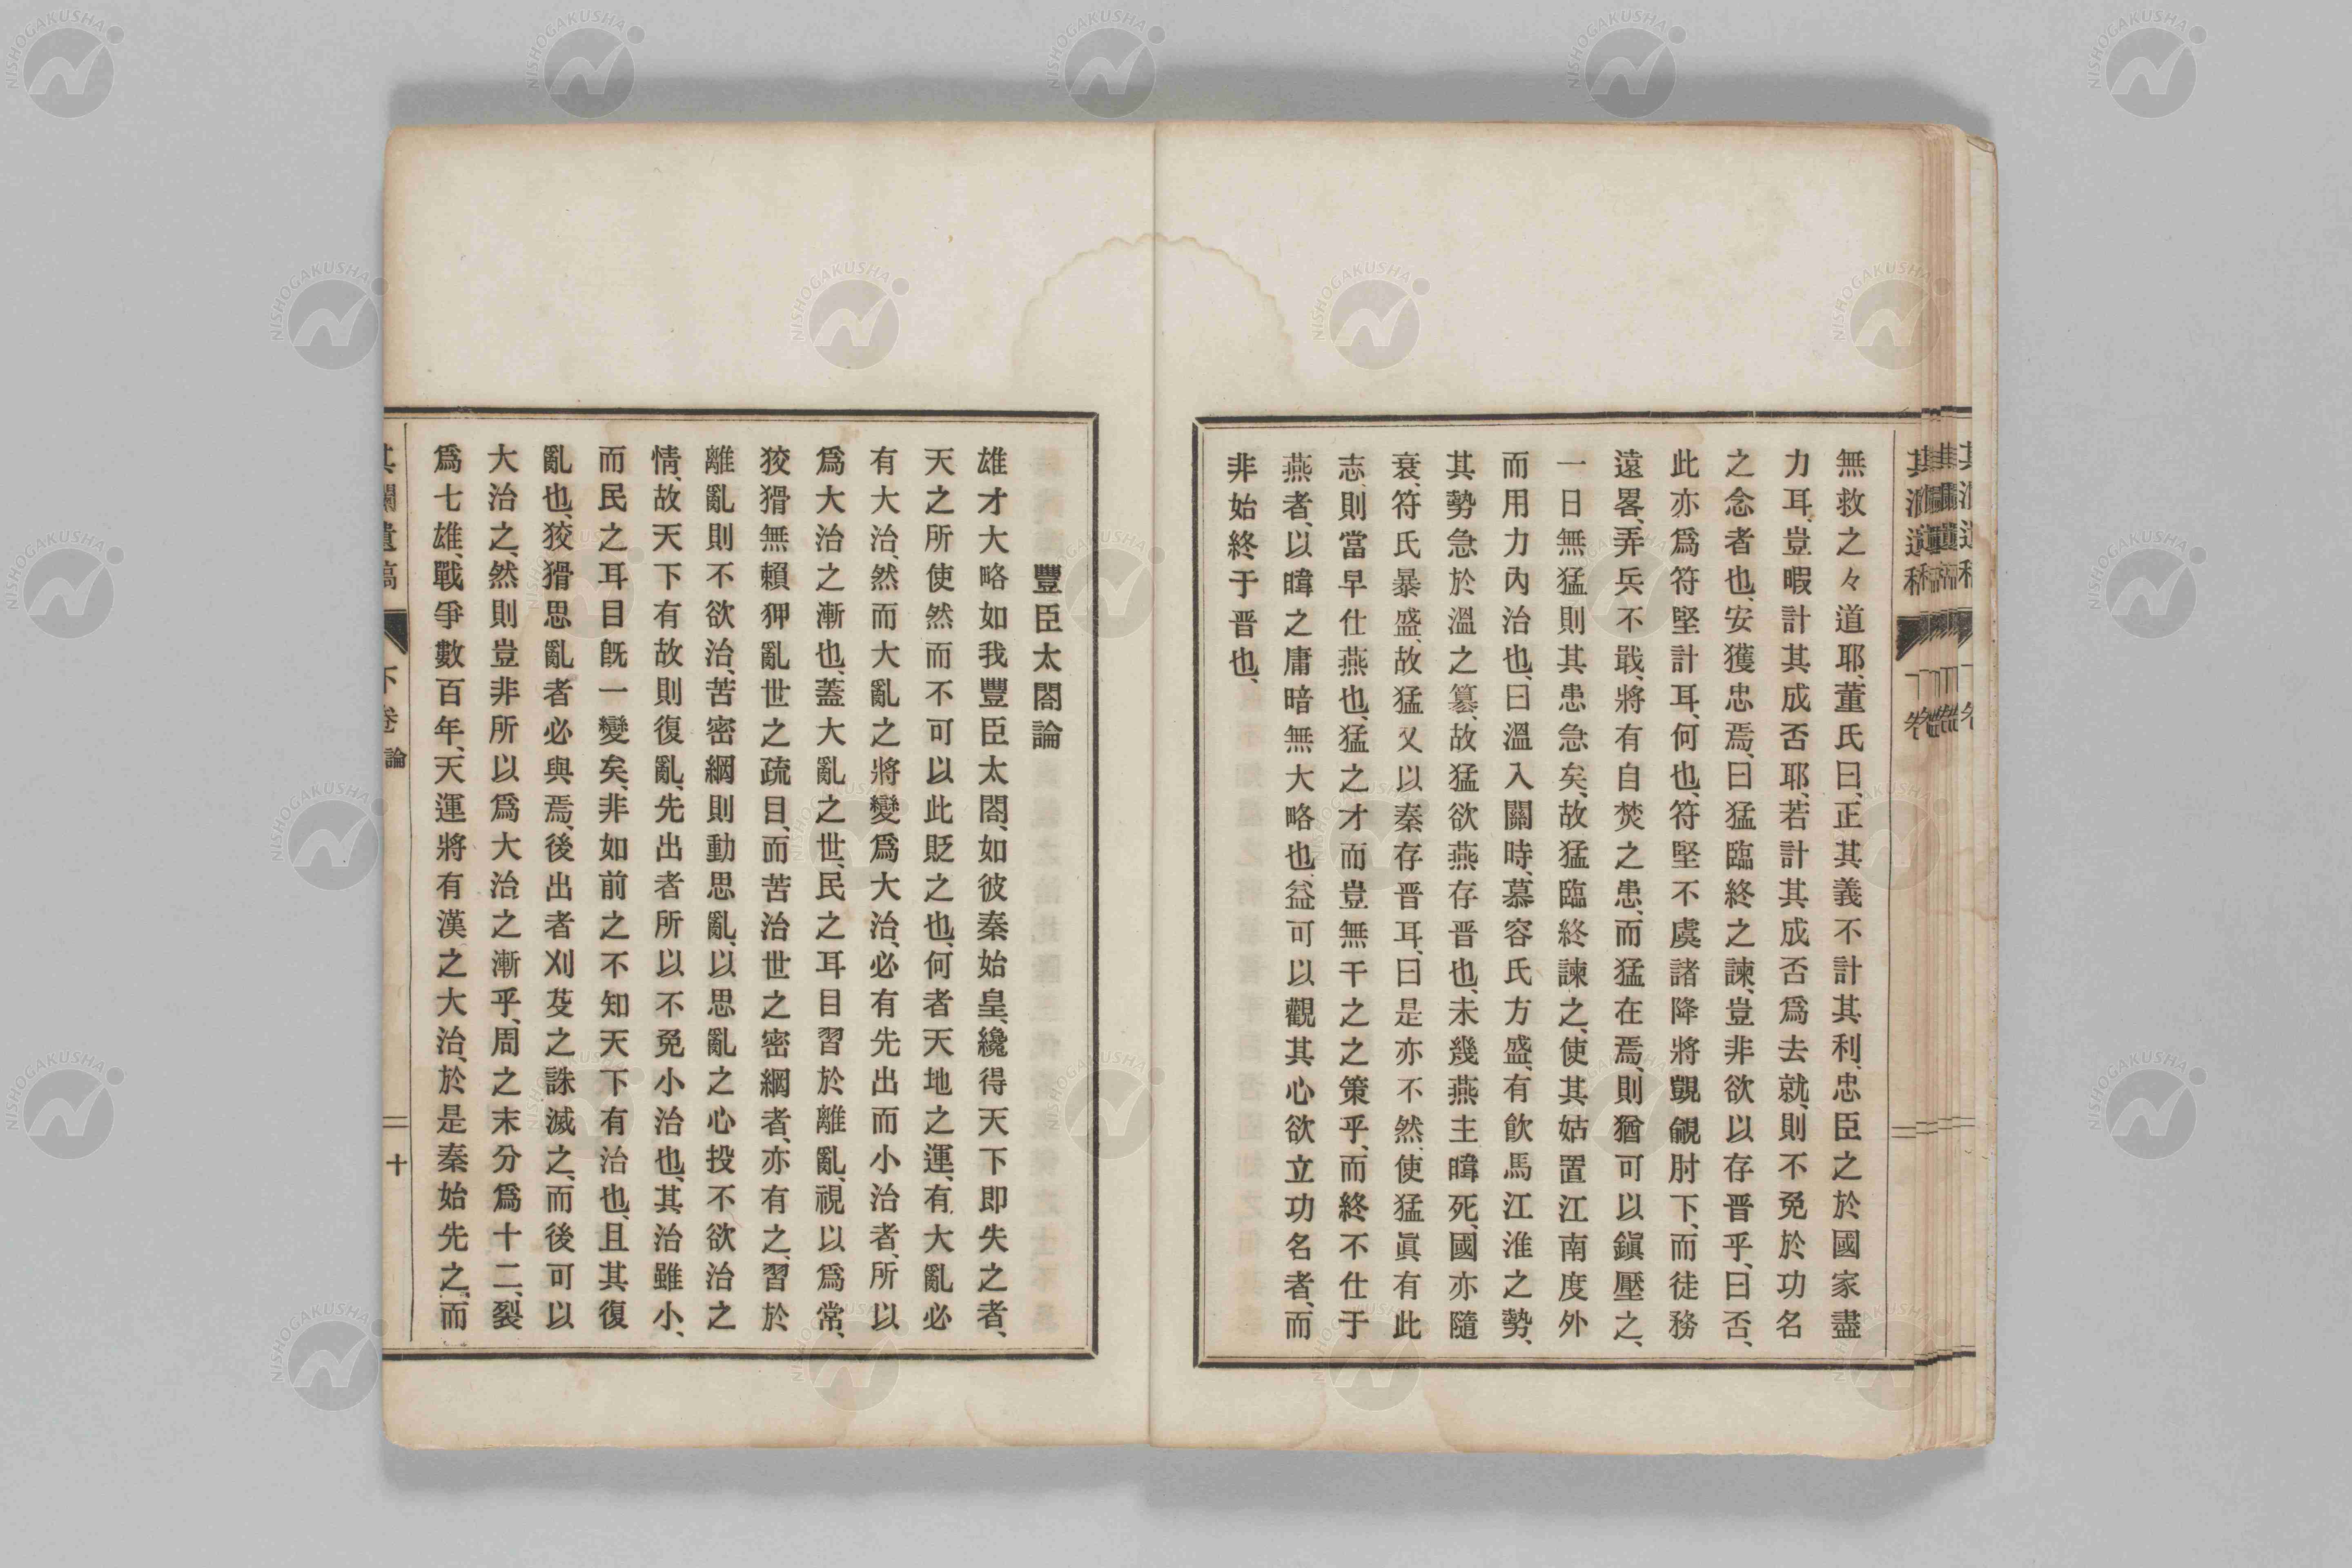 無救之々道耶、董氏曰、正其義不計其利、忠臣之於國家盡
力耳、豈暇計其成否耶、若計其成否爲去就、則不免於功名
之念者也、安獲忠焉、曰猛臨終之諫、豈非欲以存晋乎、曰否、
此亦爲符堅計耳、何也、符堅不虞諸降將覬覦肘下、而徒務
遠畧、弄兵不戢、將有自焚之患、而猛在焉、則猶可以鎭壓之、
一日無猛則其患急矣、故猛臨終諫之、使其姑置江南度外
而用力內治也、曰溫入關時、慕容氏方盛、有飮馬江淮之勢、
其勢急於溫之簒、故猛欲燕存晋也、未幾燕主暐死、國亦隨
衰、符氏暴盛、故猛又以秦存晋耳、曰是亦不然、使猛眞有此
志、則當早仕燕也、猛之才而豈無干之之策乎、而終不仕于
燕者、以暐之庸暗無大略也、益可以觀其心欲立功名者、而
非始終于晋也、
豐臣太閤論
雄才大略如我豐臣太閤、如彼秦始皇、纔得天下即失之者、
天之所使然而不可以此貶之也、何者天地之運、有大亂必
有大治、然而大亂之將變爲大治、必有先出而小治者、所以
爲大治之漸也、蓋大亂之世、民之耳目習於離亂、視以爲常、
狡猾無賴狎亂世之疏目、而苦治世之密綱者、亦有之、習於
離亂則不欲治、苦密綱則動思亂、以思亂之心投不欲治之
情、故天下有故則復亂、先出者所以不免小治也、其治雖小、
而民之耳目旣一變矣、非如前之不知天下有治也、且其復
亂也、狡猾思亂者必與焉、後出者刈芟之誅滅之、而後可以
大治之、然則豈非所以爲大治之漸乎、周之末分爲十二、裂
爲七雄、戰爭數百年、天運將有漢之大治、於是秦始先之、而
下卷 論
十